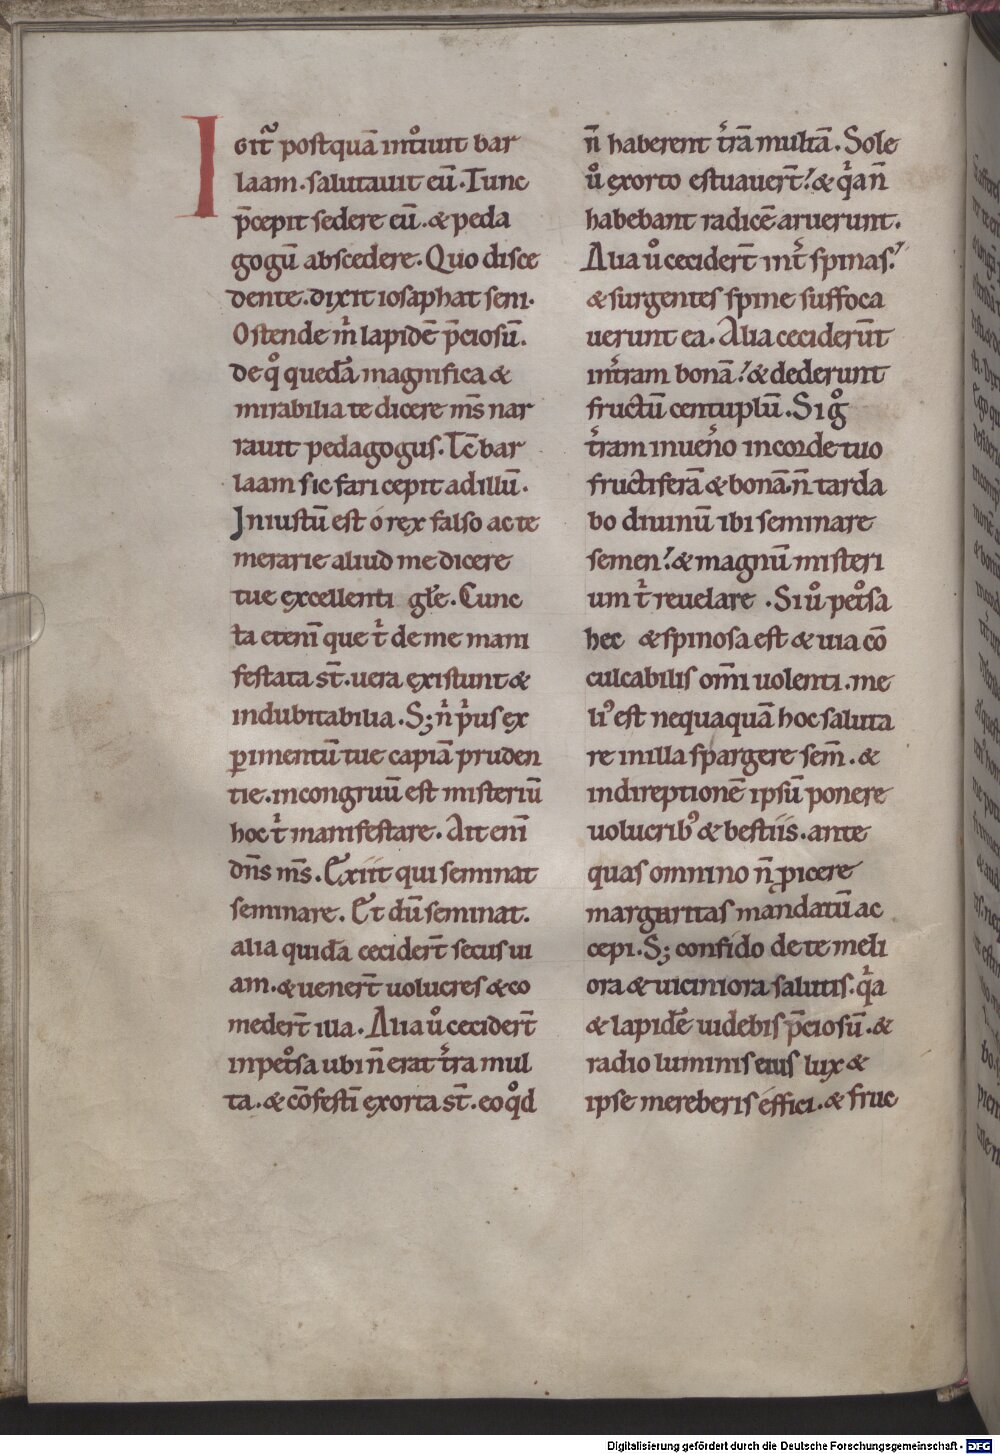 Igit᷑ postquā intͦiuit bar
laam. salutauit eū. Tunc
p̄cepit sedere eū. & peda
gogū abscedere. Quo disce
dente. dixit iosaphat seni.
Ostende m̉ lapidē p̄ciosū.
de qͦ quedā magnifica &
mirabilia te dicere m̄s nar
rauit pedagogus. Tc̄ bar
laam sic fari cepit ad illū.
Iniustū est ó rex falso ac te
merarie aliud me dicere
tue excellenti gl̄e. Cunc
ta etenī que t̉ de me mani
festata st̄. uera existunt &
indubitabilia. S; n̉ p̉us ex
perimentū tue capiā pruden
tie. incongruū est misteriū
hoc t̉ manifestare. Ait enī
dn̄s m̄s. Exiit qui seminat
seminare. Et dū seminat.
alia quidā cecidert̄ secus ui
am. & uenert̄ uolucres & co
medert̄ illa. Alia uͦ cecidert̄
in petͦsa ubi n̄ erat t̉ra mul
ta. & cōfestī exorta st̄. eo qͦd
n̄ haberent t̉rā multā. Sole
uͦ exorto estuauert̄. & q̉a n̄
habebant radicē aruerunt.
Alia uͦ cecidert̄ int̉ spinas.
& surgentes spine suffoca
uerunt ea. Alia ceciderūt
in t̉ram bonā. & dederunt
fructū centuplū. Si gͦ
t̉ram inuen̉o in corde tuo
fructiferā & bonā. n̄ tarda
bo diuinū ibi seminare
semen. & magnū misteri
um t̉ reuelare. Si uͦ petͦsa
hec & spinosa est & uia cō
culcabilis om̄i uolenti. me
liꝰ est nequaquā hoc saluta
re in illa spargere sem̄. &
in direptionē ipsū ponere
uolucribꝰ & bestiis. ante
quas omnino n̄ proicere
margaritas mandatū ac
cepi. S; confido de te meli
ora & uiciniora salutis. q̉a
& lapidē uidebis p̄ciosū. &
radio luminis eius lux &
ipse mereberis effici. & fruc
Digitalisierung gefördert durch die Deutsche Forschungsgemeinschaft - DFG